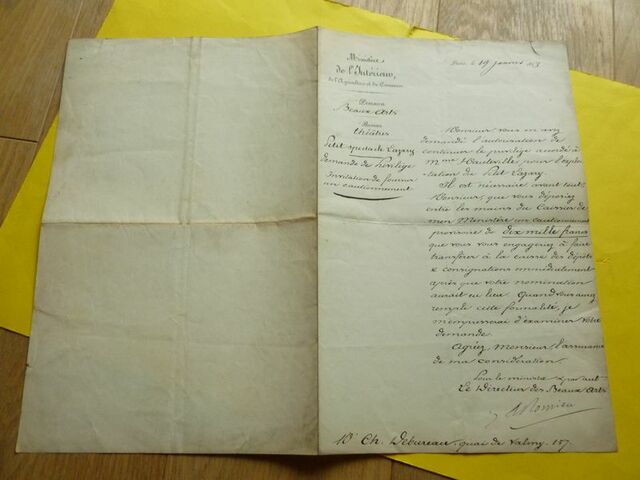 Ministère
de l'Intérieur,
de l'Agriculture et du Commerce
Division
Beaux Arts
Bureau
théâtres
Petit spectacle Lazary
demande de Privilège
Invitation de fournir
un cautionnement
Paris, le 19 janvier 185
Monsieur vous m'avez
demandé l'autorisation de
continuer le privilège accordé à
Mme Hauteville pour l'exploi-
tation du Petit Lazary.
Il est nécessaire avant tout,
Monsieur, que vous déposiez
entre les mains du Caissier de
mon Ministère un cautionnement
provisoire de dix mille francs
que vous vous engagerez à faire
transférer à la caisse des dépôts
& consignations immédiatement
après que votre nomination
aurait eu lieu. Quand vous aurez
rempli cette formalité, je
m'empresserai d'examiner votre
demande.
Agréez, Monsieur l'assurance
de ma considération.
Pour le ministre & par aut.
Le Directeur des Beaux Arts
Romieu
Mr Ch. Débureau, quai de Valmy. 157